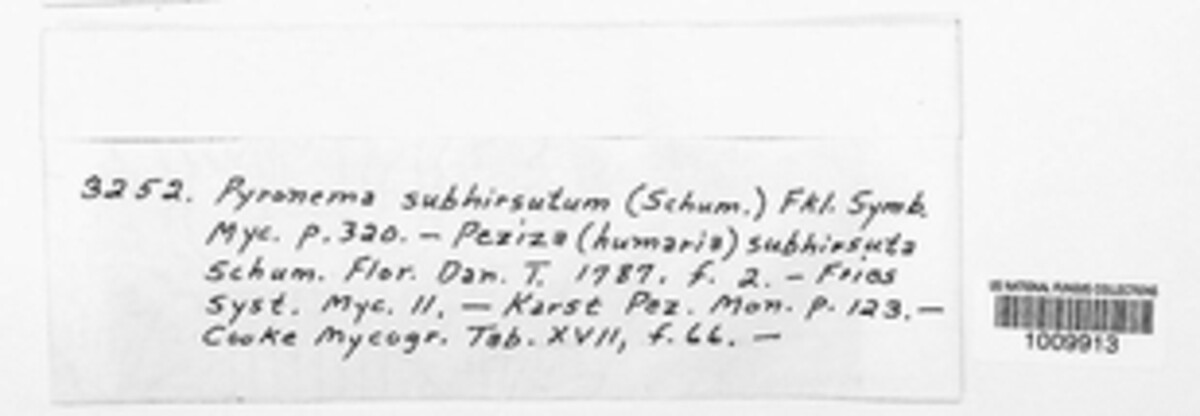 3252. Pyronema subhirsutum (Schum.) Fkl. Symb.
Myc. p. 320. — Peziza (humaria) subhirsuta
Schum. Flor. Dan. T. 1787. f. 2. — Fries
Syst. Myc. II. — Karst Pez. Mon. p. 123. —
Cooke Mycogr. Tab. XVII, f. 66. —
US NATIONAL FUNGUS COLLECTIONS
1009913